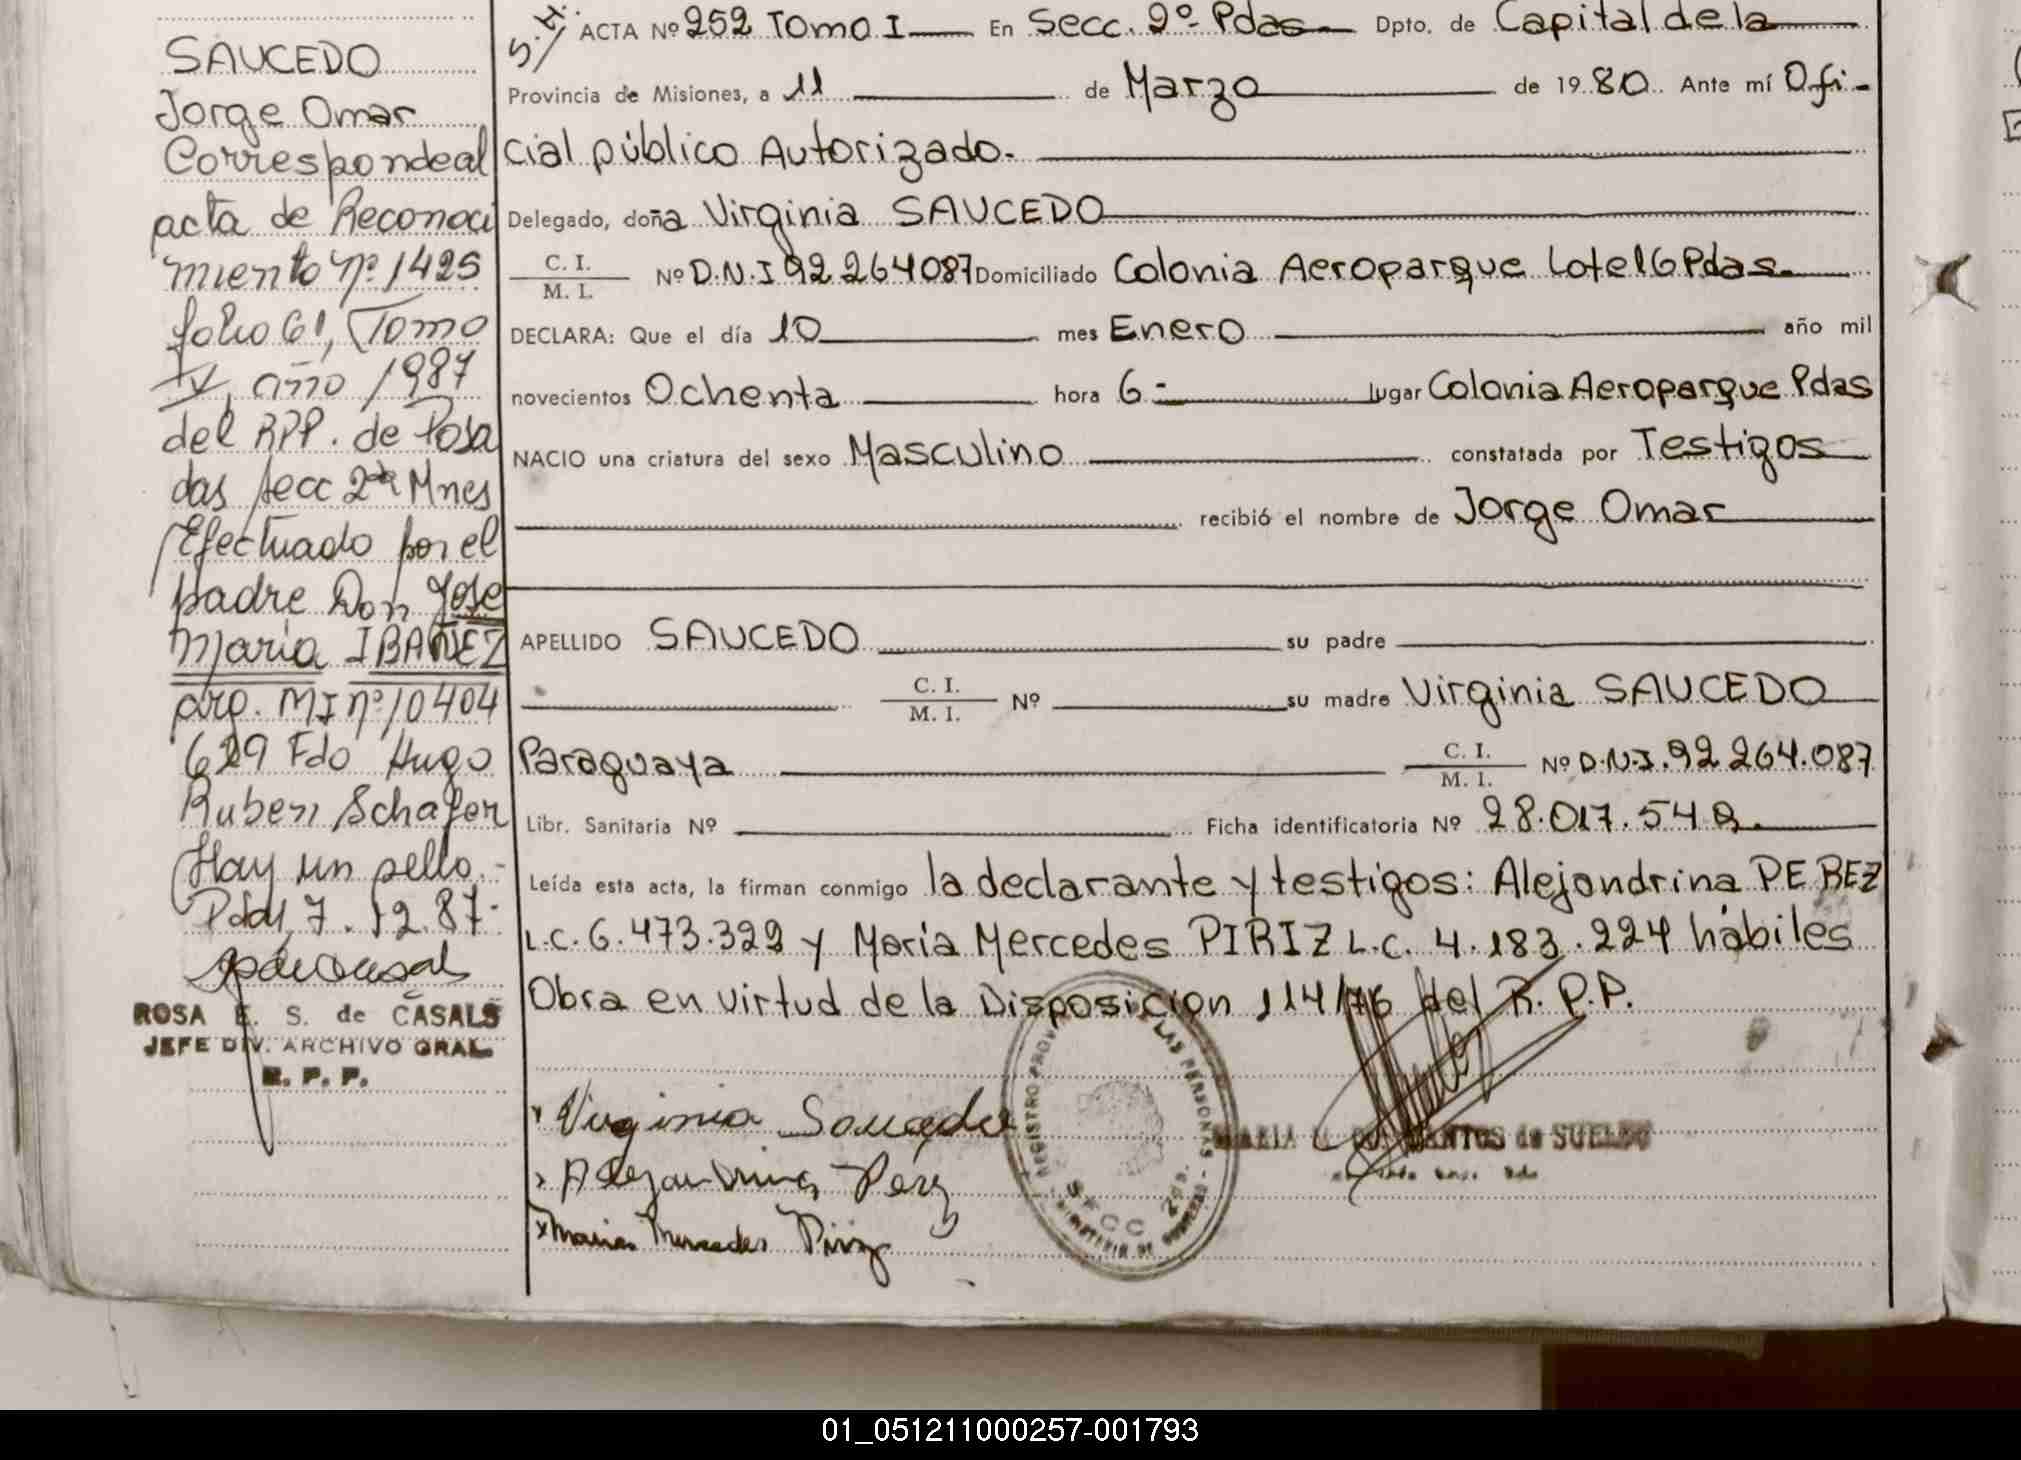 SAUCEDO
Jorge Omar
Corresponde al
acta de Reconoci
miento nº 1425
folio 61, Tomo
IV, año 1987
del RPP. de Posa
das secc 2da Mnes
Efectuado por el
padre Don Jose
Maria IBAÑEZ
arg. MI nº 10404
629 Fdo Hugo
Ruben Schafer
Hay un sello.-
Pdas, 7.12.87-
ROSA E. S. de CASALS
JEFE DIV. ARCHIVO GRAL.
R. P. P.
S.H. ACTA Nº 252 Tomo I En Secc. 2º Pdas Dpto. de Capital de la
Provincia de Misiones, a 11 de Marzo de 1980. Ante mí Ofi-
cial público Autorizado.
Delegado, doña Virginia SAUCEDO
C. I. / M. I. Nº D.N.I 92 264087 Domiciliado Colonia Aeroparque Lote 16 Pdas.
DECLARA: Que el día 10 mes Enero año mil
novecientos Ochenta hora 6- lugar Colonia Aeroparque Pdas
NACIO una criatura del sexo Masculino constatada por Testigos
recibió el nombre de Jorge Omar
APELLIDO SAUCEDO su padre
C. I. / M. I. Nº su madre Virginia SAUCEDO
Paraguaya C. I. / M. I. Nº D.N.I. 92 264.087
Libr. Sanitaria Nº Ficha identificatoria Nº 28.017.542.
Leída esta acta, la firman conmigo la declarante y testigos: Alejandrina PEREZ
L.C. 6.473.329 y Maria Mercedes PIRIZ L.C. 4.183.224 hábiles
Obra en virtud de la Disposicion 114/76 del R.P.P.
Virginia Saucedo
Alejandrina Perez
Maria Mercedes Piriz
REGISTRO LAS PERSONAS
SECC 2da.
MARIA de SUELDO
01_051211000257-001793